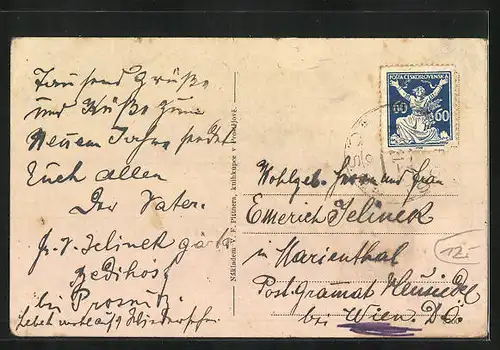 Tausend Grüße
und Küße zum
Neuem Jahre sendet
Euch allen
Der Vater.
J. Jelinek
bei Prossnitz
Lebet wohl auf Wiedersehen
Nákladem V. F. Pittnera, knihkupce v Prostějově.
POŠTA ČESKOSLOVENSKÁ
60 60
Wohlgeb. Herrn und Frau
Emerich Jelinek
in Marienthal
Post Gramat Neusiedel
bei Wien D.Ö.
12-